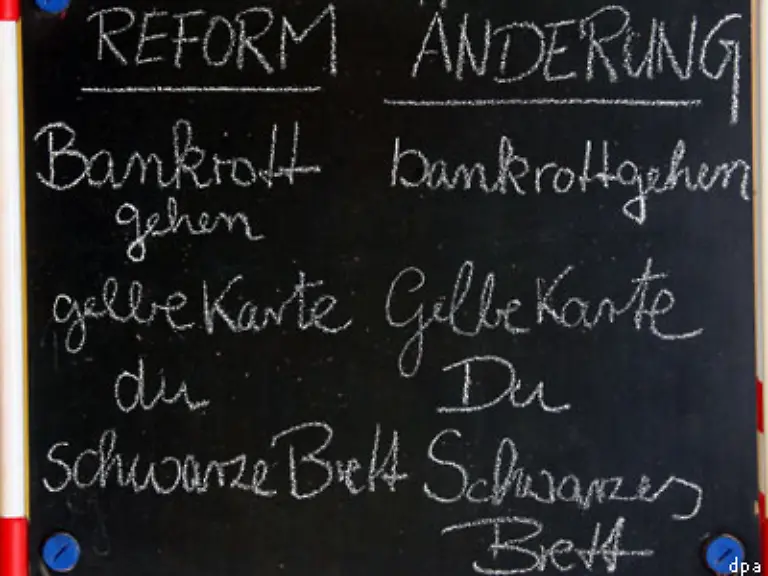 REFORM ÄNDERUNG
Bankrott bankrottgehen
gehen
gelbe Karte Gelbe Karte
du Du
schwarze Brett Schwarzes
Brett
dpa